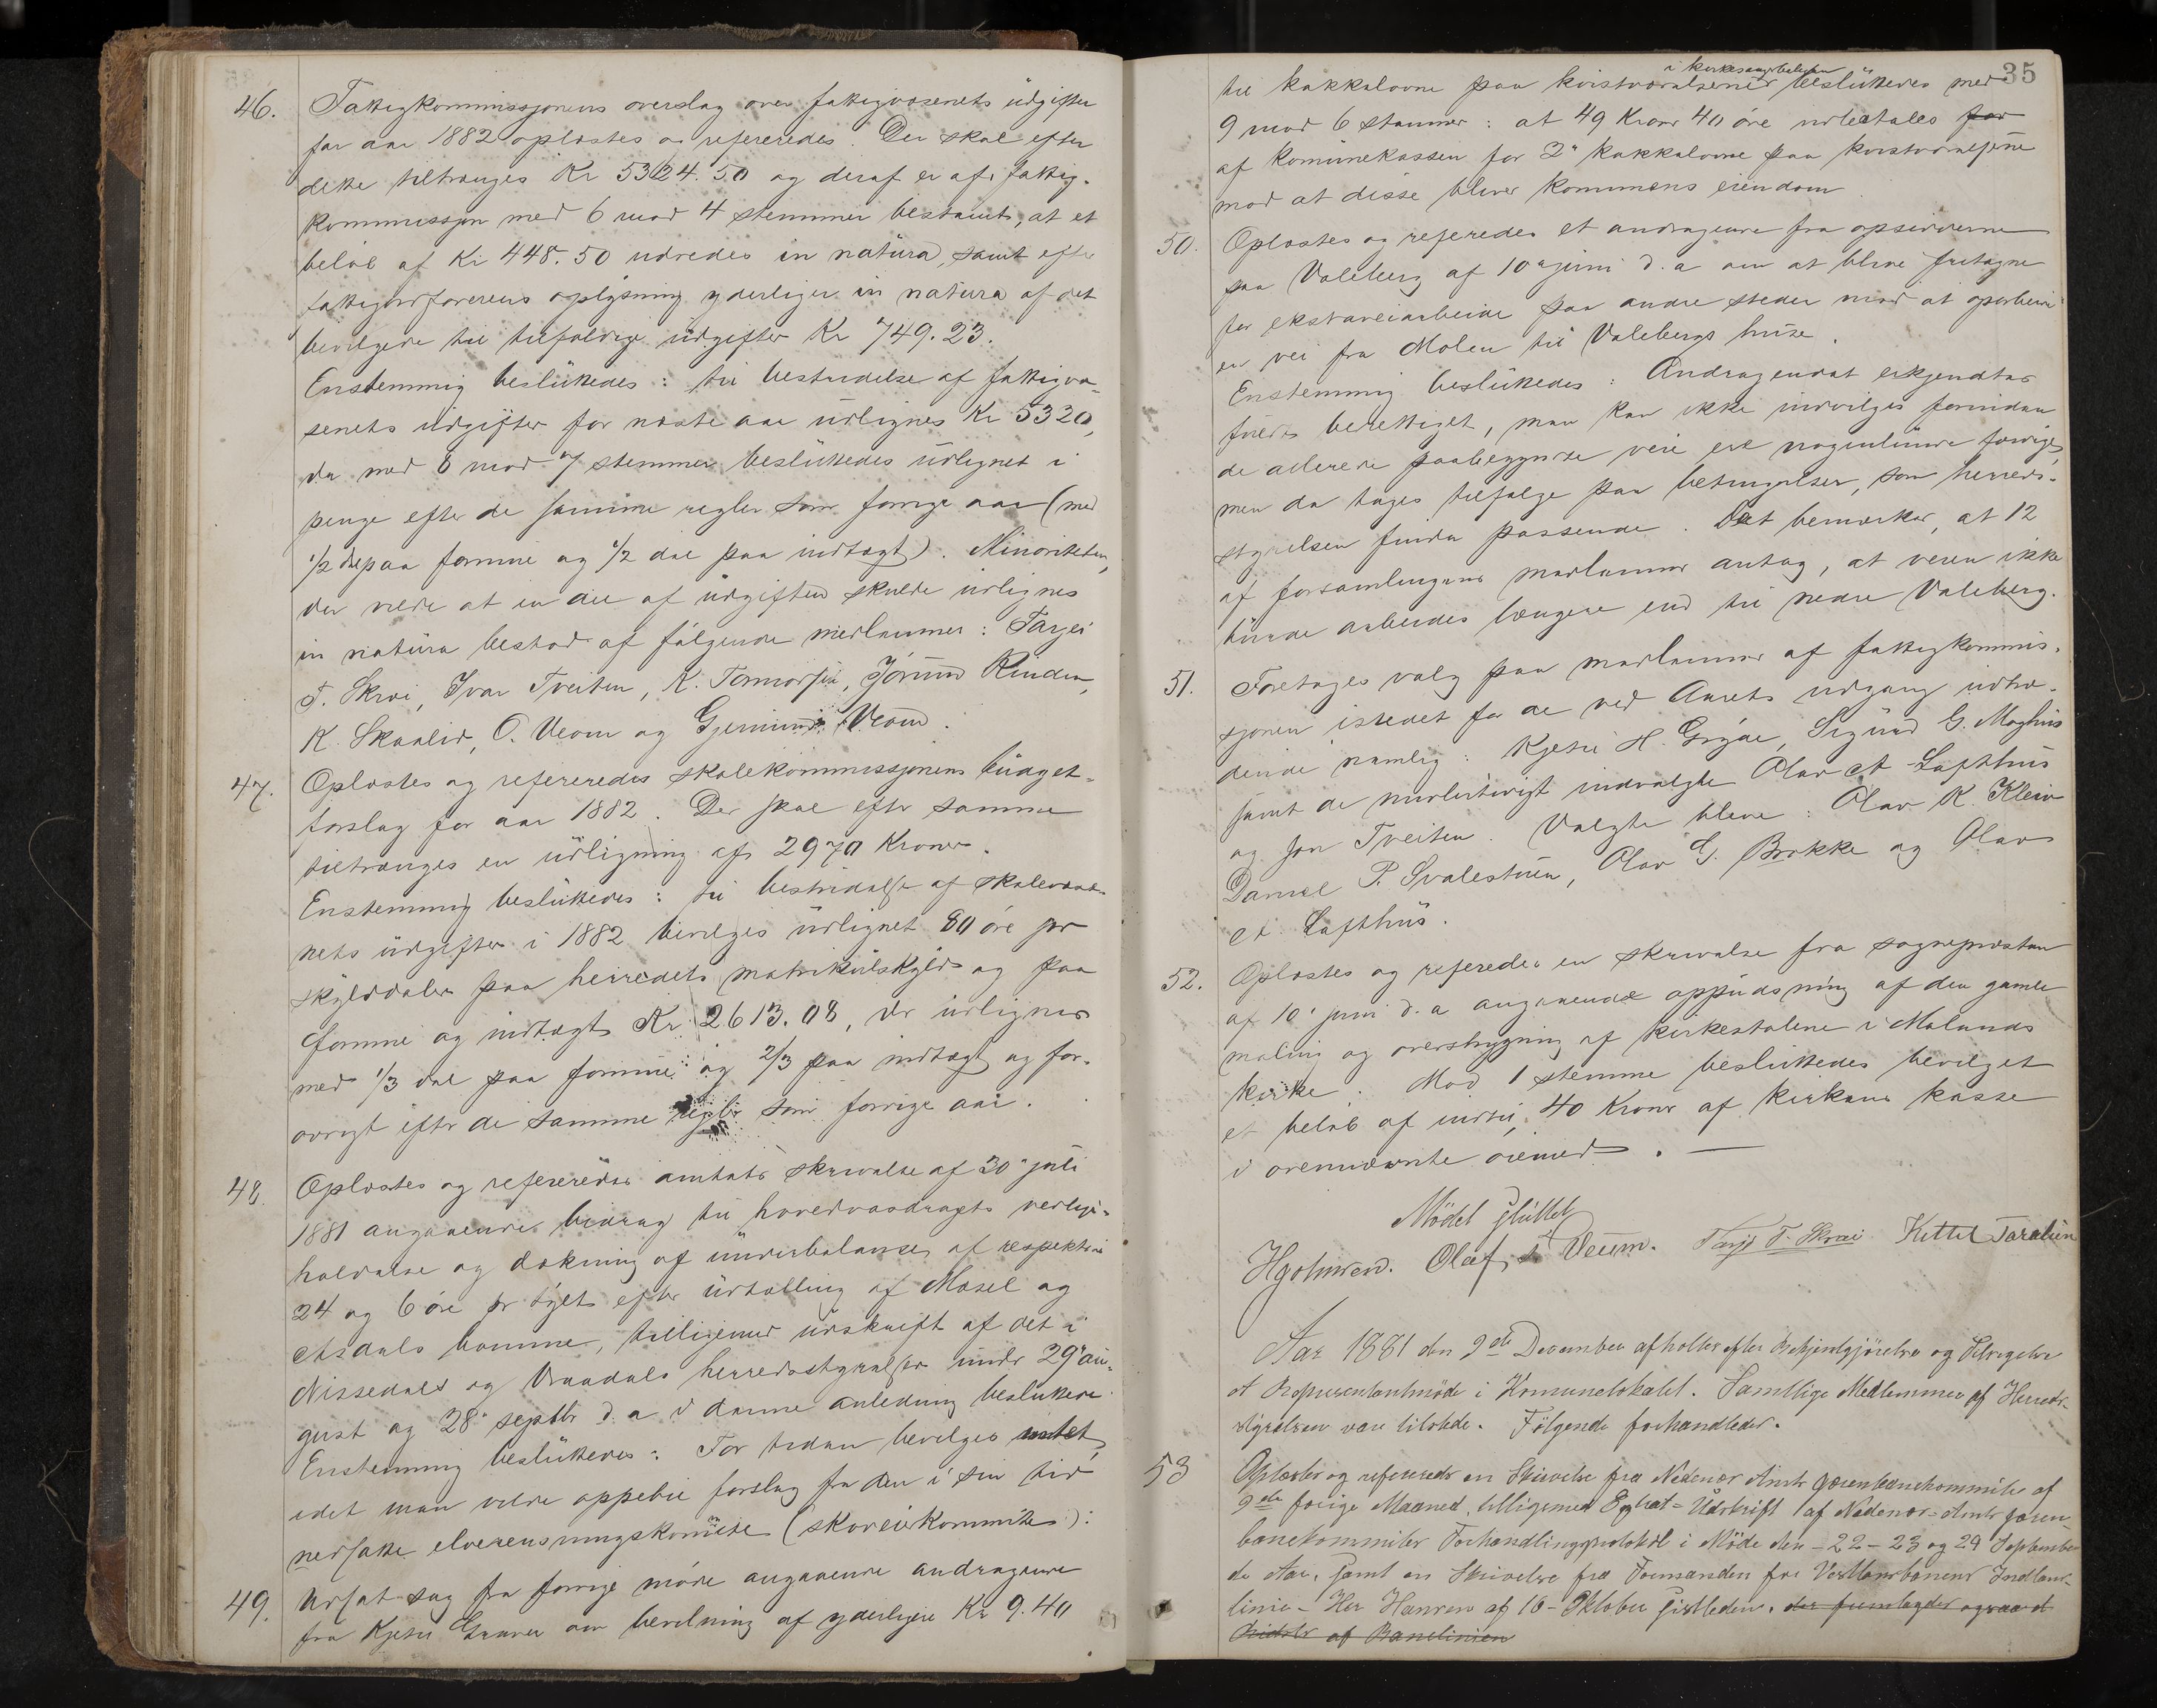 46. Fattigkommissjonens overslag over fattigvæsenets udgifter
for aar 1882 oplæstes og refereredes. Der skal efter
dette tiltrænges Kr 5324.50 og deraf er af fattig-
kommissjon med 6 mod 4 stemmer bestemt, at et
beløb af Kr 448.50 udredes in natura, samt efter
fattigordførerens oplysning yderliger in natura af det
bevilgede til tilfældige udgifter Kr 749.23.
Enstemmig besluttedes: til bestridelse af fattigvæ-
senets udgifter for næste aar udlignes Kr 5320,
der med 8 mod 7 stemmer besluttedes udlignet i
penge efter de samme regler som forrige aar (med
1/2 del paa formue og 1/2 del paa indtægt). Minoriteten,
der vilde at en del af udgiften skulde udlignes
in natura bestod af følgende medlemmer: Targei
T. Skrei, Ivar Tveiten, K. Jørund Rinden,
K. Skaalid, O. Veum og Gjermund Veum.
47. Oplæstes og refereredes skolekommissjonens budget-
forslag for aar 1882. Der skal efter samme
tiltrænges en udligning af 2970 Kroner.
Enstemmig besluttedes: til bestridelse af skolevæse-
nets udgifter i 1882 bevilges udlignet 80 øre pr
skylddaler paa herredets matrikulskyld og paa
formue og indtægt Kr 2613.08, der udlignes
med 1/3 del paa formue og 2/3 paa indtægt og for-
øvrigt efter de samme regler som forrige aar.
48. Oplæstes og refereredes amtets skrivelse af 30 juli
1881 angaaende bidrag til hovedvasdragets vedlige-
holdelse og dækning af underbalance af respektive
24 og 6 øre pr tylt efter udtælling af Mosel og
Aasdals bomme, tilligemed udskrift af det i
Nissedals og Vraadals herredsstyrelser under 29 au-
gust og 28 septbr d.a. i denne anledning besluttede
Enstemmig besluttedes: For tiden bevilges intet,
idet man vilde oppebie forslag fra den i sin tid
nedsatte elverensningskomite (skoveierkommite):
49. Udsat sag fra forrige møde angaaende andragende
fra Kjetil Graver om bevilning af yderligere Kr 9.40
35
i kirkesangerboligen
til kakkelovne paa kvistværelserne besluttedes med
9 mod 6 stemmer: at 49 Kroner 40 øre udbetales for
af kommunekassen for 2 kakkelovne paa kvistværelserne
mod at disse bliver kommunens eiendom.
50. Oplæstes og referedes et andragende fra opsidderne
paa Valeberg af 10 juni d.a. om at blive fritagne
for ekstraveiarbeide paa andre steder mod at oparbeide
en vei fra Molen til Valebergs huse.
Enstemmig besluttedes: Andragendet erkjendtes
fuldt berettiget, men kan ikke indvilges forinden
de allerede paabegyndte veie er nogenlunde færdige,
men da tages tilfølge paa betingelser, som herreds-
styrelsen finder passende. Det bemærkes, at 12
af forsamlingens medlemmer antog, at veien ikke
burde arbeides længere end til nedre Valeberg.
51. Foretoges valg paa medlemmer af fattigkommis-
sjonen istedet for de ved Aarets udgang udtræ-
dende nemlig: Kjetil H. Sigurd G. Moghus
samt de midlertidigt indvalgte Olav A Lofthus
og Jon Tveiten. Valgte bleve: Olav K. Kleiv
Daniel P. Svalestuen, Olav G. Brokke og Olav
A. Lofthus.
52. Oplæstes og referedes en skrivelse fra sognepresten
af 10 juni d.a. angaaende oppudsning af den gamle
maling og overstrygning af kirkestolene i Molands
kirke. Mod 1 stemme besluttedes bevilget
et beløb af indtil 40 Kroner af kirkens kasse
i ovennævnte øiemed. —
Mødet sluttet
Olaf Veum. Targe T. Skrei Kittel Taraldlien
Aar 1881 den 9de December afholtes efter Bekjendtgjørelse og Tilsigelse
et Repræsentantmøde i Komunelokalet. Samtlige Medlemmer af Herreds-
styrelsen vare tilstede. Følgende forhandledes.
53 Oplæstes og refereredes en Skrivelse fra Nedenæs Amts Jærenbanekommite af
9de forige Maaned, tilligemed Extrat-Udskrift af Nedenæs-Amts Jæren-
banekommites Forhandlingsprotokol i Møde den - 22 - 23 og 29 September
de Aar, samt en Skrivelse fra Formanden for Vestlansbanens Indlans-
linie - Her Hansen af 16 - Oktober sistleden. der fremlagdes ogsaa et
Ridsts af Banelinien